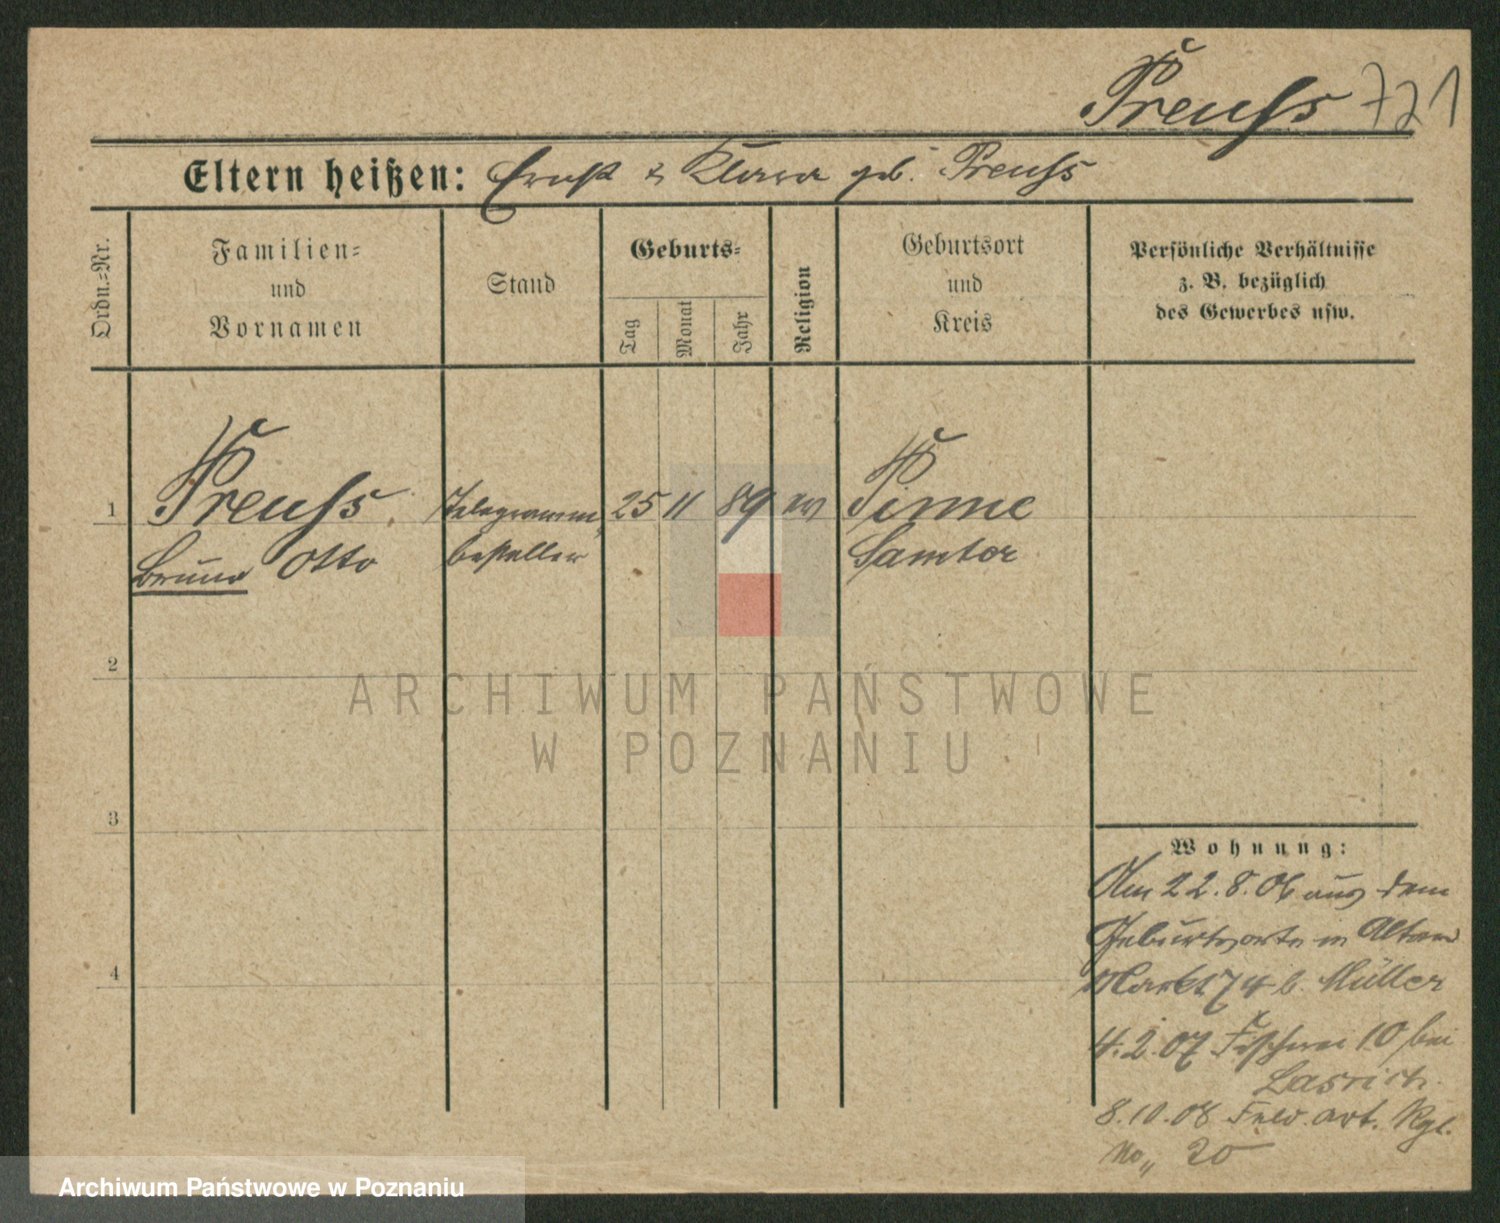 Preuß 721
Eltern heißen: Ernst & Klara geb. Preuß
Ordn.-Nr.
Familien-
und
Vornamen
Stand
Geburts-
Tag
Monat
Jahr
Religion
Geburtsort
und
Kreis
Persönliche Verhältnisse
z. B. bezüglich
des Gewerbes usw.
1 Preuß Telegramm 25 11 89 ev Pinne
Bruno Otto besteller Samter
2
ARCHIWUM PAŃSTWOWE
W POZNANIU
3
Wohnung:
Am 22.8.06 aus dem
Geburtsorte in Alten
Markt 74 b. Müller
4
4.2.07 Fischerei 10 bei
8.10.08 Feld. art. Rgt.
No 20
Archiwum Państwowe w Poznaniu